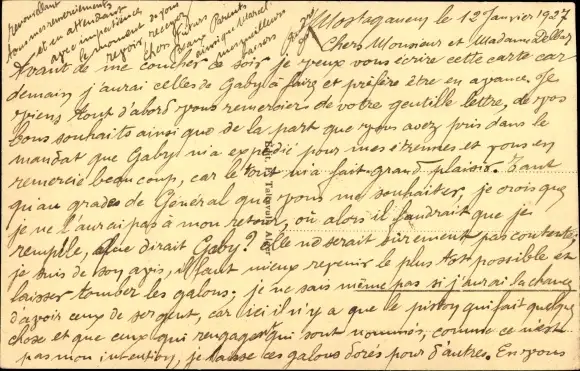 Mostaganem le 12 Janvier 1927
Chers Monsieur et Madame
Avant de me coucher ce soir je veux vous écrire cette carte car
demain j'aurai celles de Gaby à faire et préfère être en avance. Je
viens tout d'abord vous remercier de votre gentille lettre, de vos
bons souhaits ainsi que de la part que vous avez pris dans le
mandat que Gaby m'a expédié pour mes étrennes et vous en
remercie beaucoup, car le tout m'a fait grand plaisir. Tant
qu'au grade de Général que vous me souhaiter, je crois que
je ne l'aurai pas à mon retour, où alors il faudrait que je
rempile, et que dirait Gaby? Elle ne serait sûrement pas contente;
je suis de son avis, il faut mieux revenir le plus tôt possible et
laisser tomber les galons. je ne sais même pas si j'aurai la chance
d'avoir ceux de sergent, car ici il n'y a que le piston qui fait quelque
chose et que ceux qui rengagent qui sont nommés, comme ce n'est
pas mon intention, je laisse ces galons dorés pour d'autres. En vous
renouvellant
tous mes remerciements
et en attendant
avec impatience
le moment de vous
revoir recevez
chers futurs
Beaux Parents
ainsi que Marcel
meilleurs
baisers
Edit.